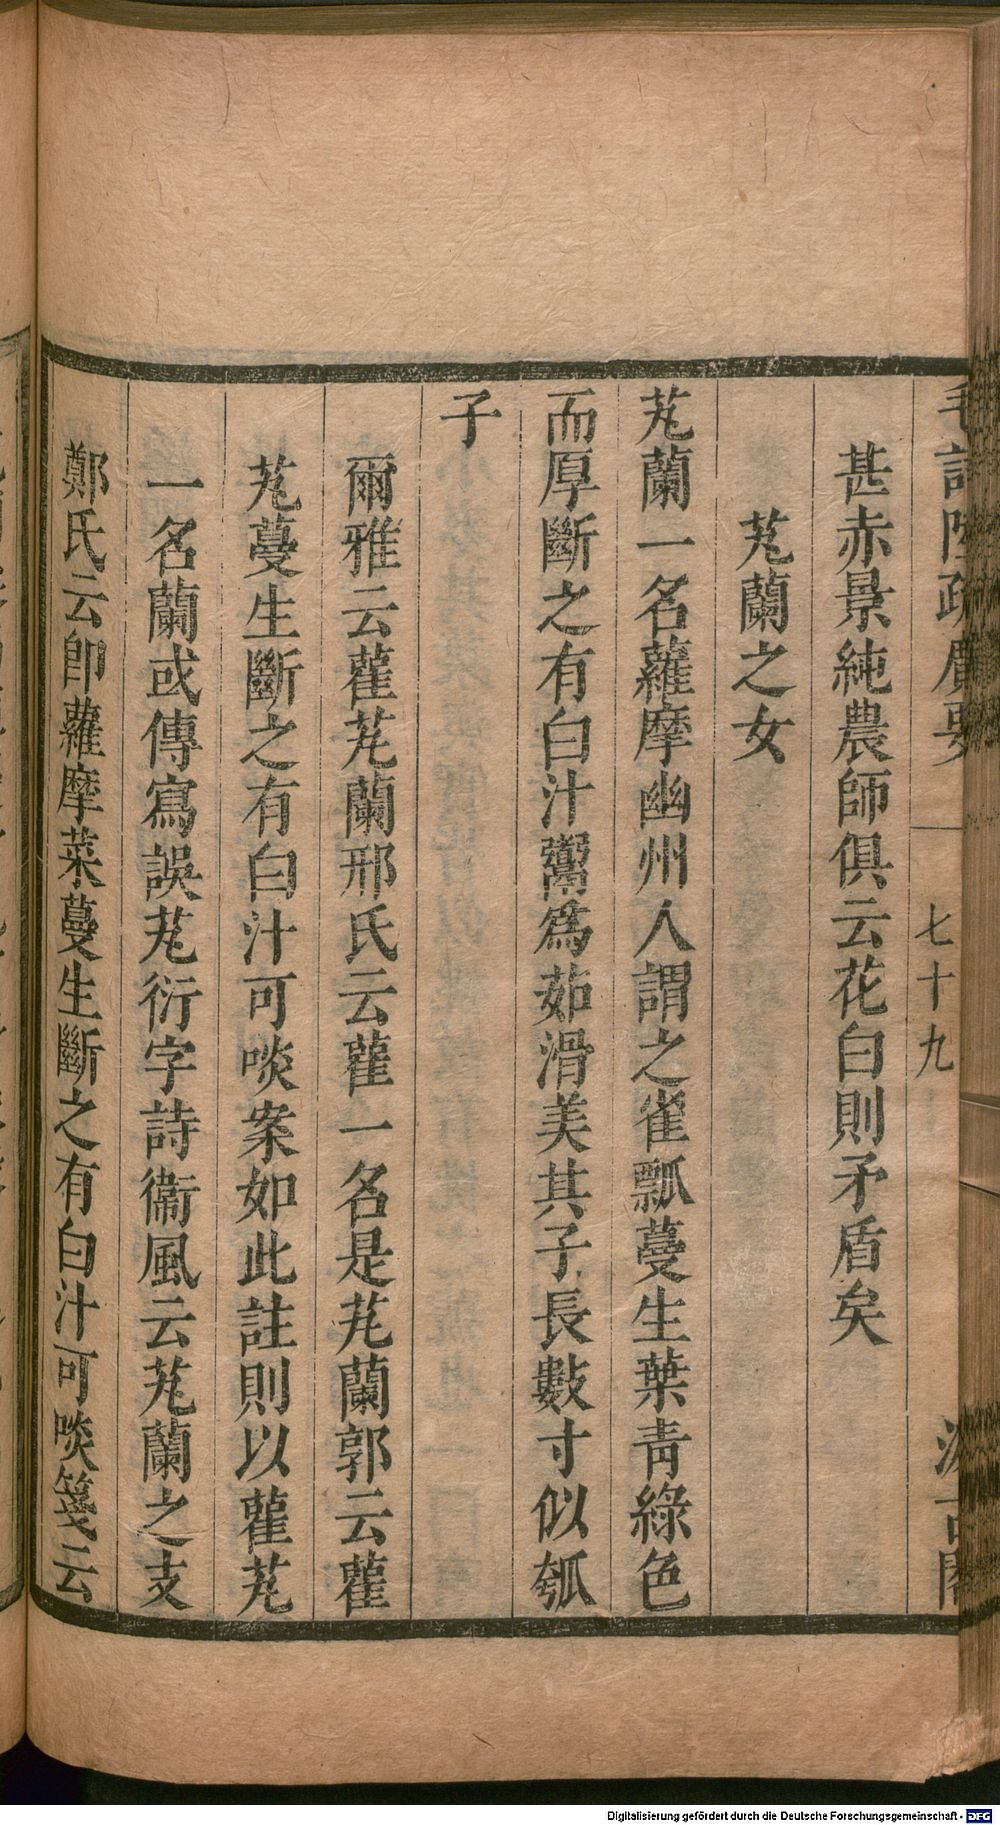 毛詩陸疏廣要 七十九 汲古閣
甚赤景純農師俱云花白則矛盾矣
芄蘭之女
芄蘭一名蘿摩幽州人謂之雀瓢蔓生葉青綠色
而厚斷之有白汁鬻爲茹滑美其子長數寸似瓠
子
爾雅云雚芄蘭邢氏云雚一名是芄蘭郭云雚
芄蔓生斷之有白汁可啖案如此註則以雚芄
一名蘭或傳寫誤芄衍字詩衞風云芄蘭之支
鄭氏云卽蘿摩菜蔓生斷之有白汁可啖箋云
Digitalisierung gefördert durch die Deutsche Forschungsgemeinschaft - DFG